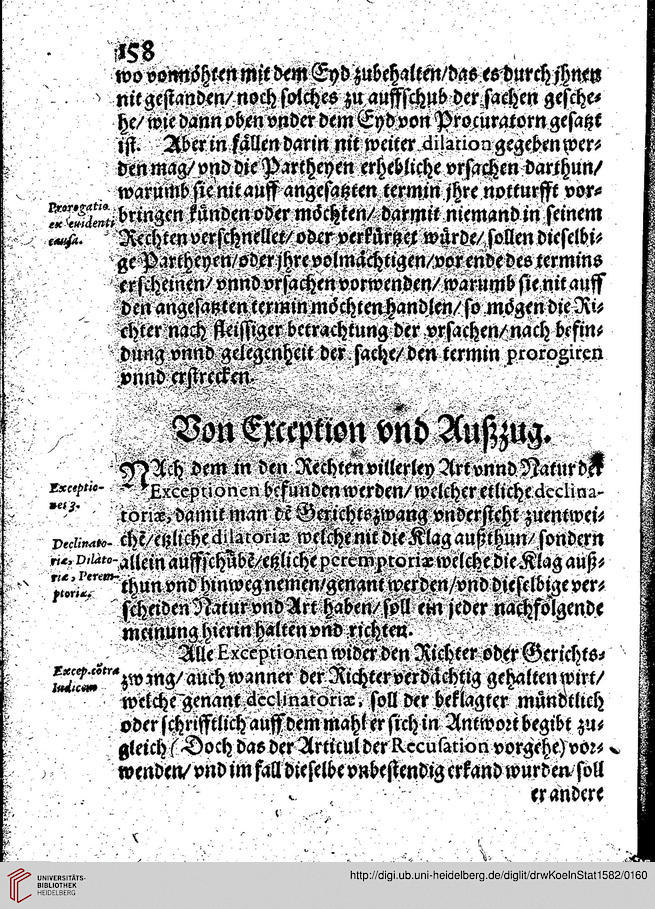 158
wo vonnöhten mit dem Eyd zubehalten/das es durch jhnen
nit gestanden/ noch solches zu auffschub der sachen gesche-
he/ wie dann oben vnder dem Eyd von Procuratorn gesatzt
ist. Aber in fällen darin nit weiter dilation gegeben wer-
den mag/ vnd die Partheyen erhebliche vrsachen darthun/
warumb sie nit auff angesatzten termin jhre notturfft vor-
Prorogatio
ex euidenti
causa.
bringen künden oder möchten/ darmit niemand in seinem
Rechten verschnellet/ oder verkürtzet würde/ sollen dieselbi-
ge Partheyen/oder jhre volmächtigen/vor ende des termins
erscheinen/ vnnd vrsachen vorwenden/ warumb sie nit auff
den angesatzten termin möchten handlen/ so mögen die Ri-
chter nach fleissiger betrachtung der vrsachen/ nach befin-
dung vnnd gelegenheit der sache/ den termin prorogiren
vnnd erstrecken.
Von Exception vnd Außzug.
NAch dem in den Rechten villerley Art vnnd Natur der
Exceptio-
nes 3.
Exceptionen befunden werden/ welcher etliche declina-
toriæ, damit man dē Gerichtszwang vndersteht zuentwei-
Declinato-
riæ, Dilato-
riæ, Perem-
ptoriæ.
chē/ etzliche dilatoriæ welche nit die Klag außthun/ sondern
allein auffschübē/ etzliche peremptoriæ welche die Klag auß-
thun vnd hinweg nemen/ genant werden/ vnd dieselbige ver-
scheiden Natur vnd Art haben/ soll ein jeder nachfolgende
meinung hierin halten vnd richten.
Alle Exceptionen wider den Richter oder Gerichts-
Excep. cōtra
Iudicem
zwang/ auch wanner der Richter verdächtig gehalten wirt/
welche genant declinatoriæ, soll der beklagter mündtlich
oder schrifftlich auff dem mahl er sich in Antwort begibt zu-
gleich (Doch das der Articul der Recusation vorgehe) vor-
wenden/ vnd im fall dieselbe vnbestendig erkand wurden/ soll
er andere
UNIVERSITÄTS-
BIBLIOTHEK
HEIDELBERG
http://digi.ub.uni-heidelberg.de/diglit/drwKoelnStat1582/0160